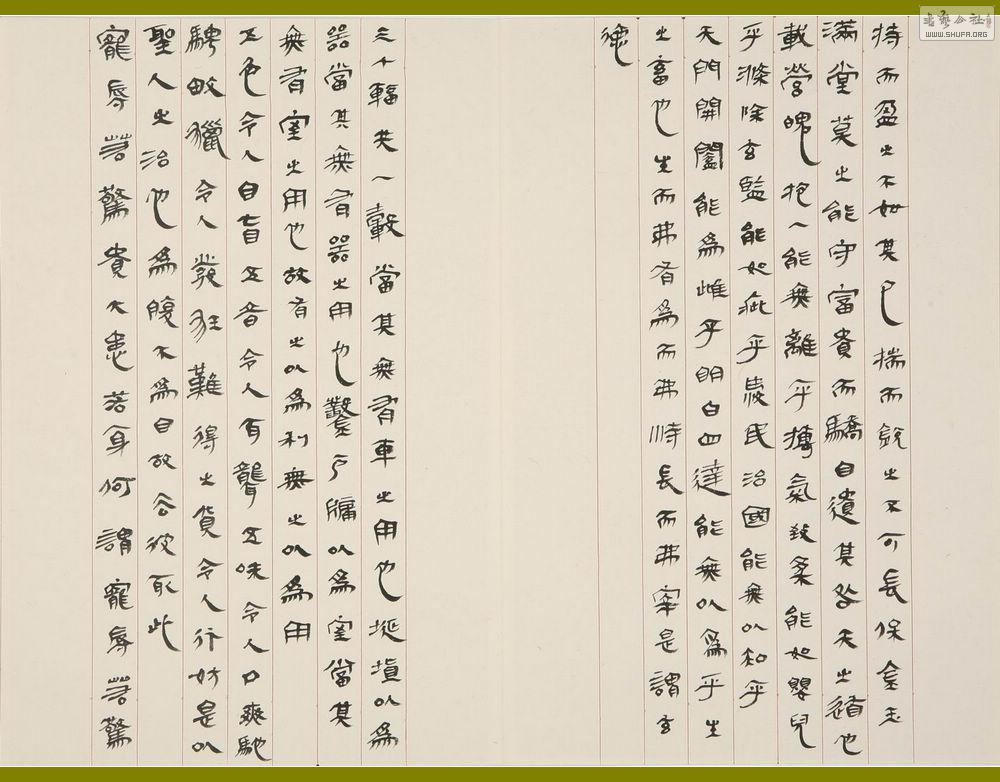 持而盈之不如其已揣而銳之不可長保金玉
滿堂莫之能守富貴而驕自遺其咎天之道也
載營魄抱一能無離乎摶氣致柔能如嬰兒
乎滌除玄監能如疵乎愛民治國能無以知乎
天門開闔能為雌乎明白四達能無以為乎生
之畜也生而弗有為而弗恃長而弗宰是謂玄
德
三十輻共一轂當其無有車之用也埏埴以為
器當其無有器之用也鑿戶牖以為室當其
無有室之用也故有之以為利無之以為用
五色令人目盲五音令人耳聾五味令人口爽馳
騁畋獵令人發狂難得之貨令人行妨是以
聖人之治也為腹不為目故去彼取此
寵辱若驚貴大患若身何謂寵辱若驚
書藝公社
WWW.SHUFA.ORG